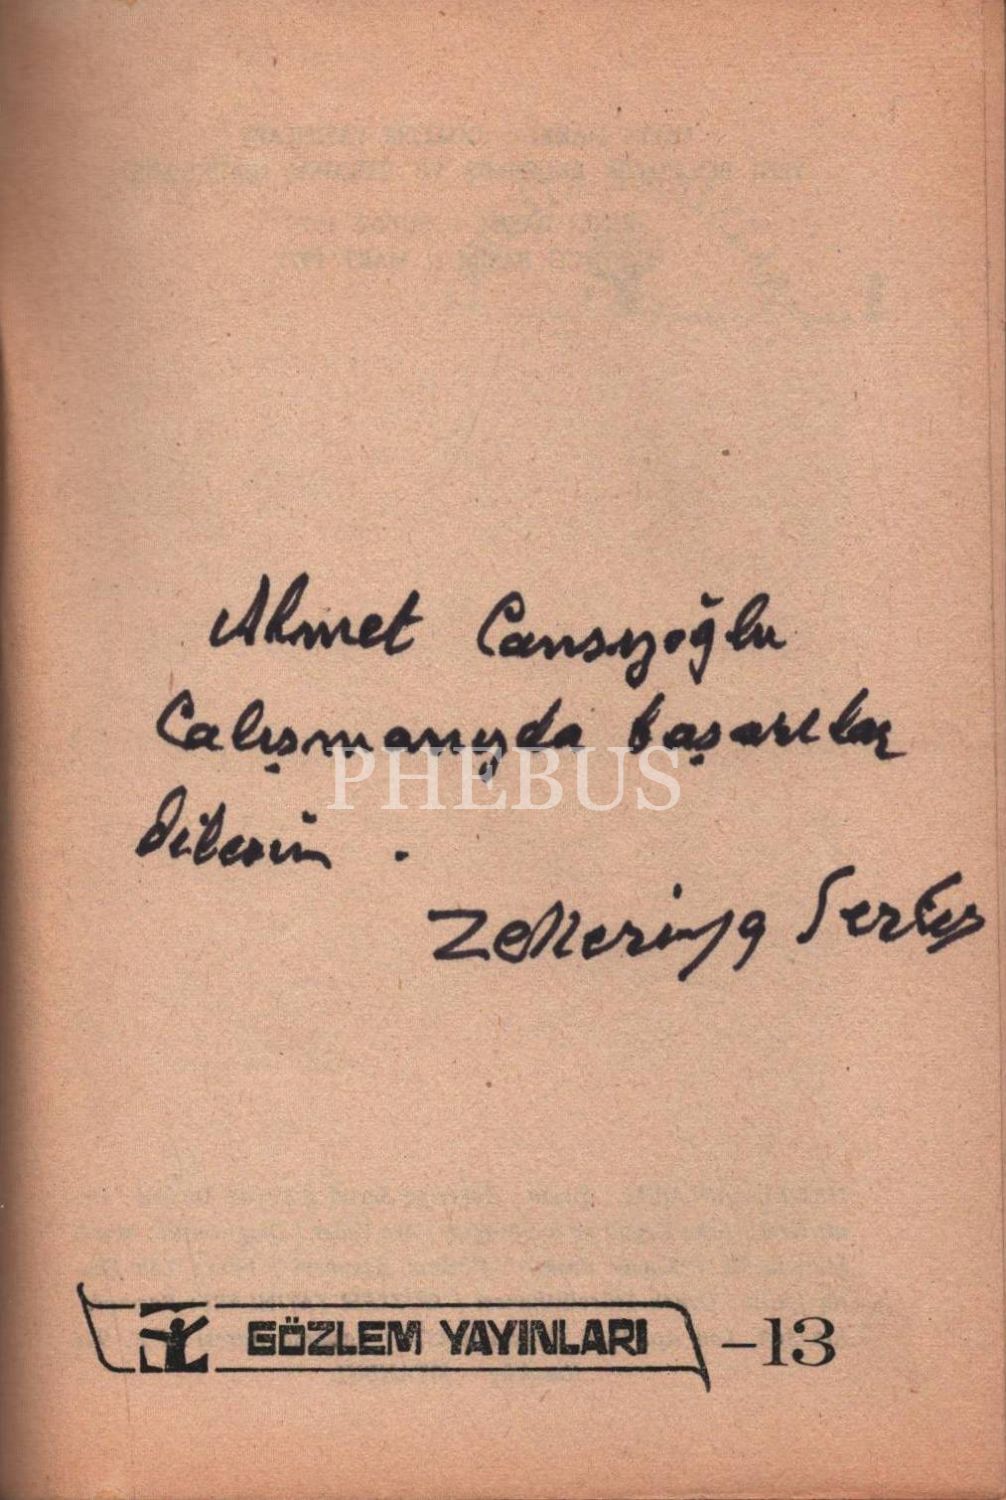 Ahmet Cansızoğlu
Çalışmanızda başarılar
dilerim.
Zekeriya Sertel
PHEBUS
GÖZLEM YAYINLARI -13